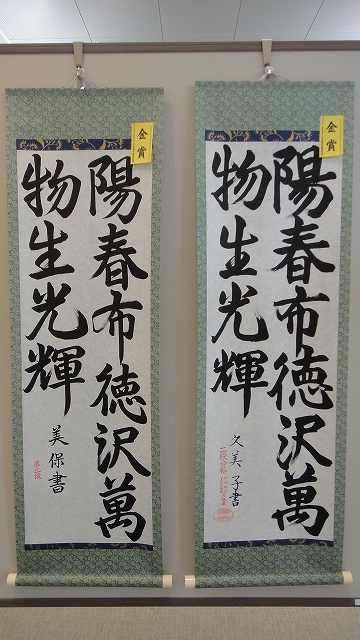 金賞
陽春布徳沢萬
物生光輝
久美子書
二段合格
金賞
陽春布徳沢萬
物生光輝
美保書